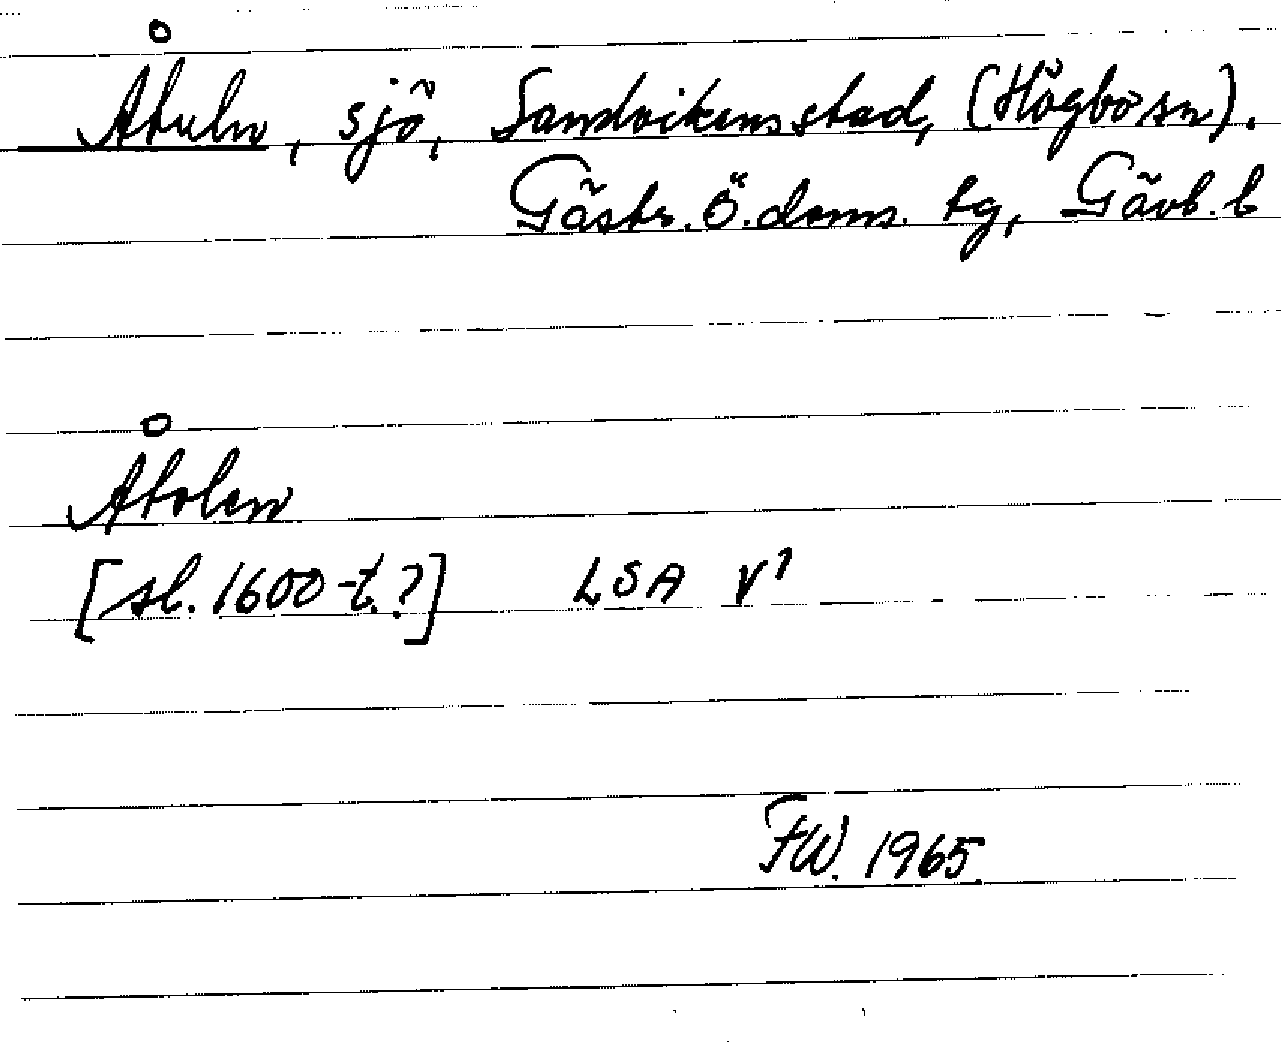 Åtuln, sjö, Sandvikens stad, (Högbo sn).
Gästr. Ö. doms. tg, Gävl. l
Åtolen
[sl. 1600-t.?] LSA V¹
FW. 1965.